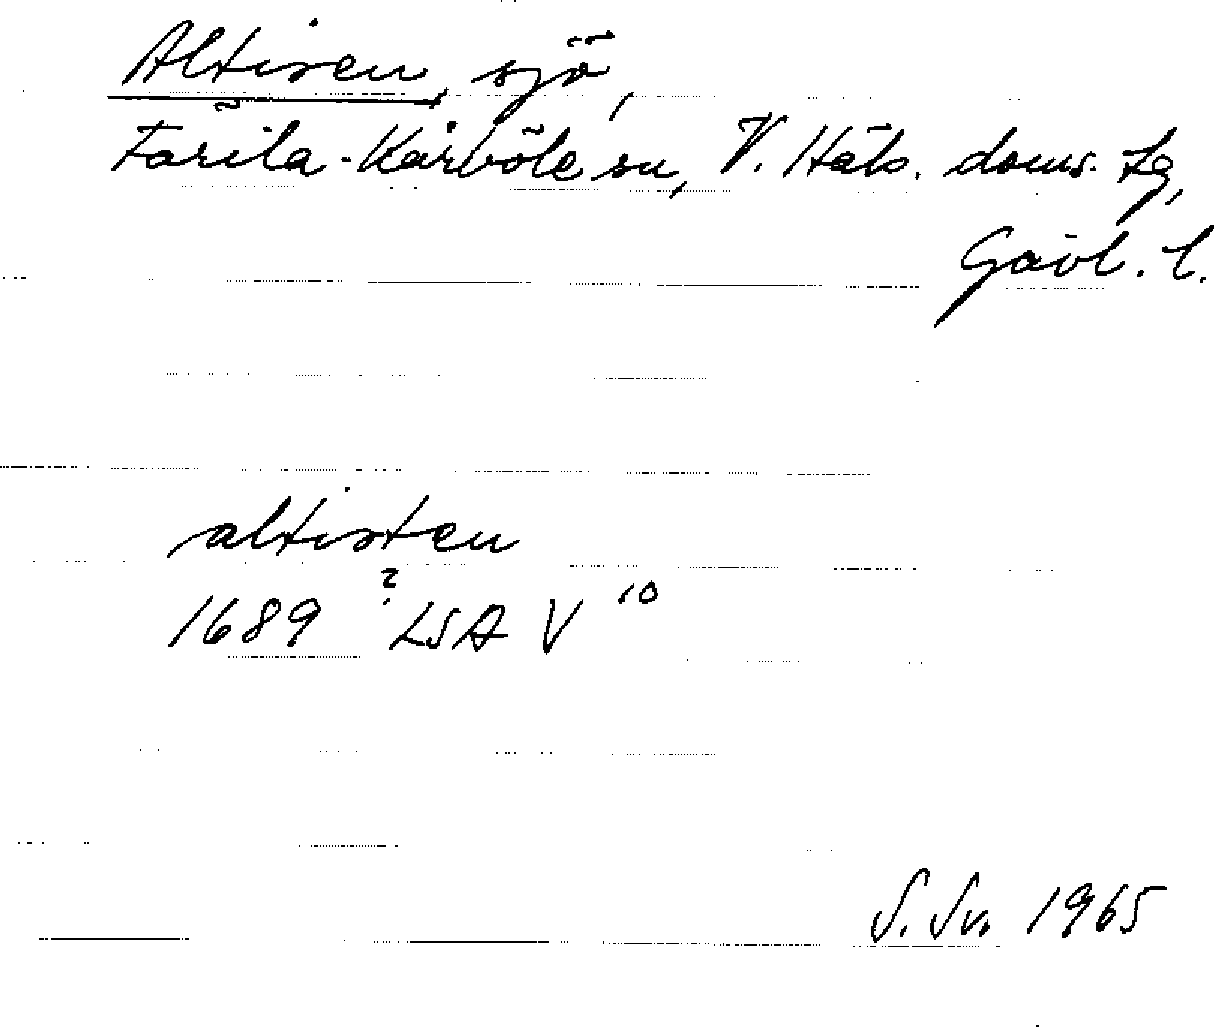 Altisen, sjö,
Färila-Kårböle sn, V. Häls. doms. tg,
Gävl. l.
altisten
1689 ? LSA V 10
S. Sv. 1965